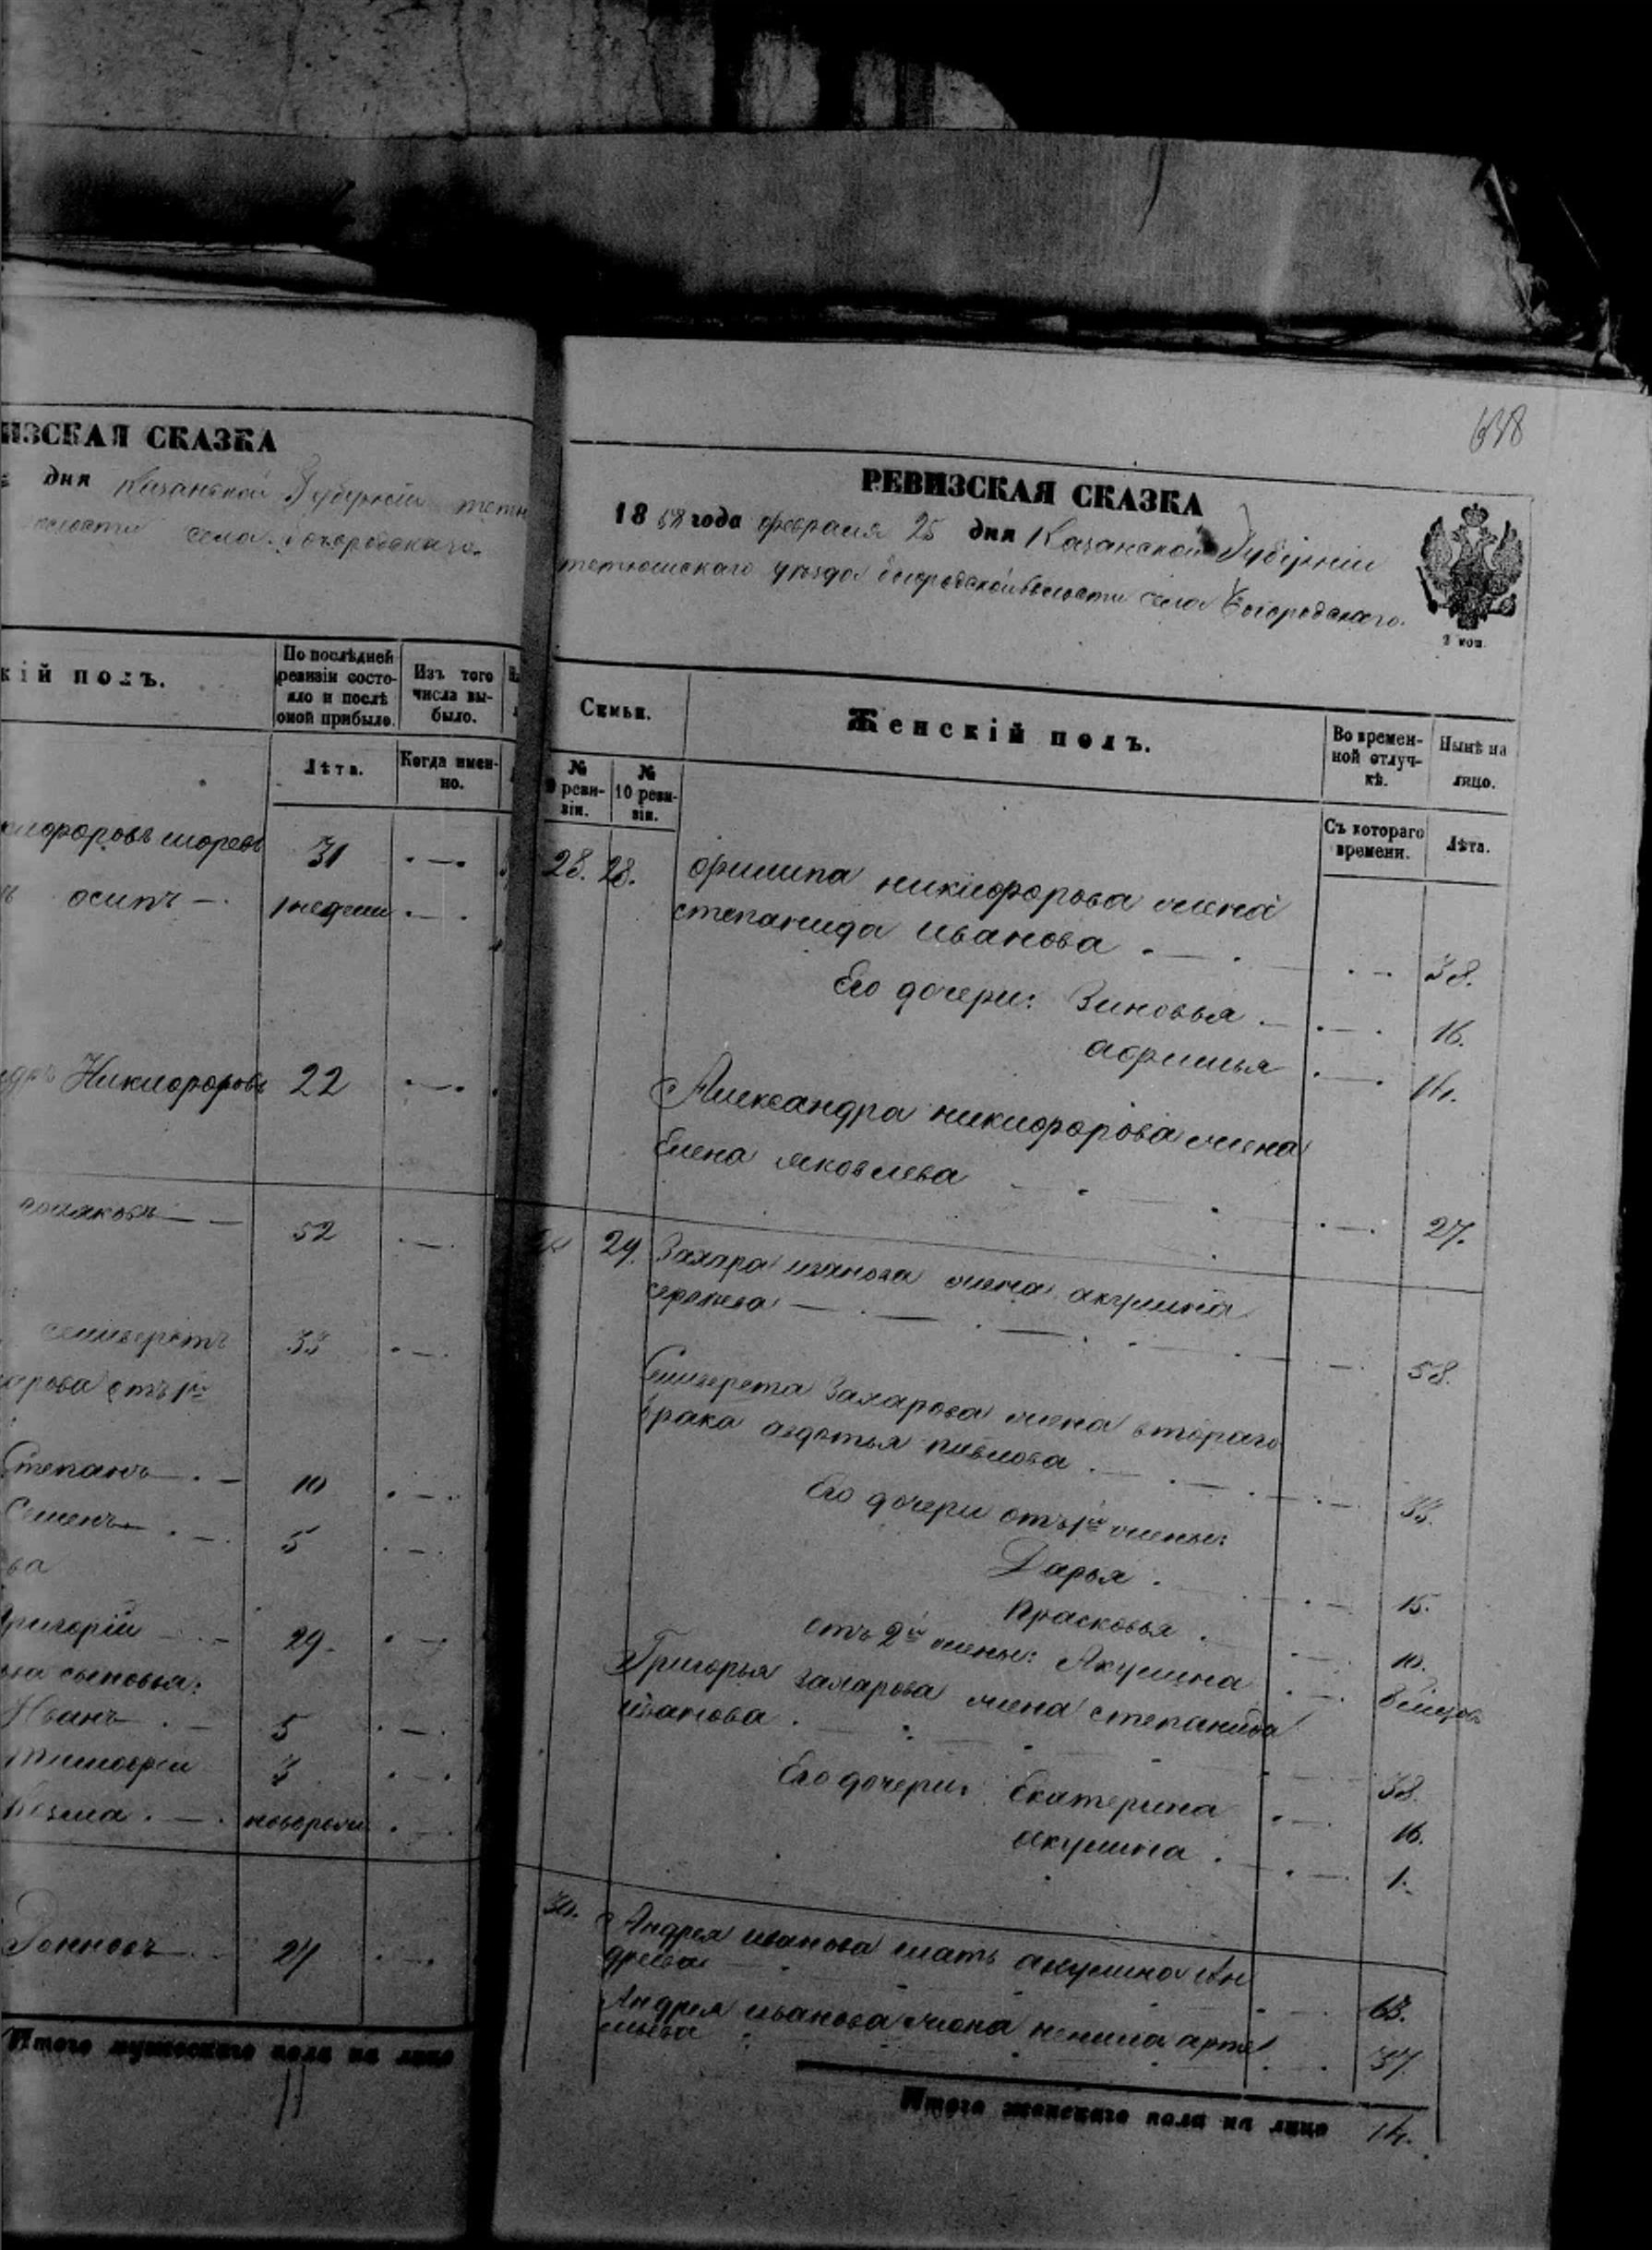 ИЗСКАЯ СКАЗКА
дня Казанской Губерніи тетю
волости села Богородскаго
кій полъ.
По послѣдней ревизіи состояло и послѣ оной прибыло.
Изъ того числа выбыло.
Лѣта.
Когда именно.
31
ъ осипъ
1 недели
Никифоровъ 22
52
селиверстъ 33
харова отъ 1й
Степанъ 10
Семенъ 5
ва
Григорій 29
сыновья:
Иванъ 5
Тимофеи 3
Козма новорож
24
Итого мужескаго пола на лицо
11
638
РЕВИЗСКАЯ СКАЗКА
1858 года февраля 25 дня Казанской Губерніи
тетюшскаго уѣзда богородской волости села Богородскаго.
2 коп.
Семьи.
Женскій полъ.
Во временной отлучкѣ.
Нынѣ на лицо.
№ 9 ревизіи.
№ 10 ревизіи.
Съ котораго времени.
Лѣта.
28. 28. филипа никифорова жена
степанида иванова 38.
Его дочери: Зиновья 16.
афимья 14.
Александра никифорова жена
Елена яковлева 27.
29. Захара иванова жена акулина
58.
Селиверста Захарова жена втораго
брака авдотья павлова 33.
Его дочери отъ 1й жены:
Дарья 15.
Прасковья 10.
отъ 2й жены: Акулина
Григорья захарова жена степанида
иванова 38.
Его дочери: Екатерина 16.
акулина 1.
30. Андрея иванова мать акулина Ан
дреева 63.
Андрея иванова жена ненила арте
мьева 37.
Итого женскаго пола на лицо 14.